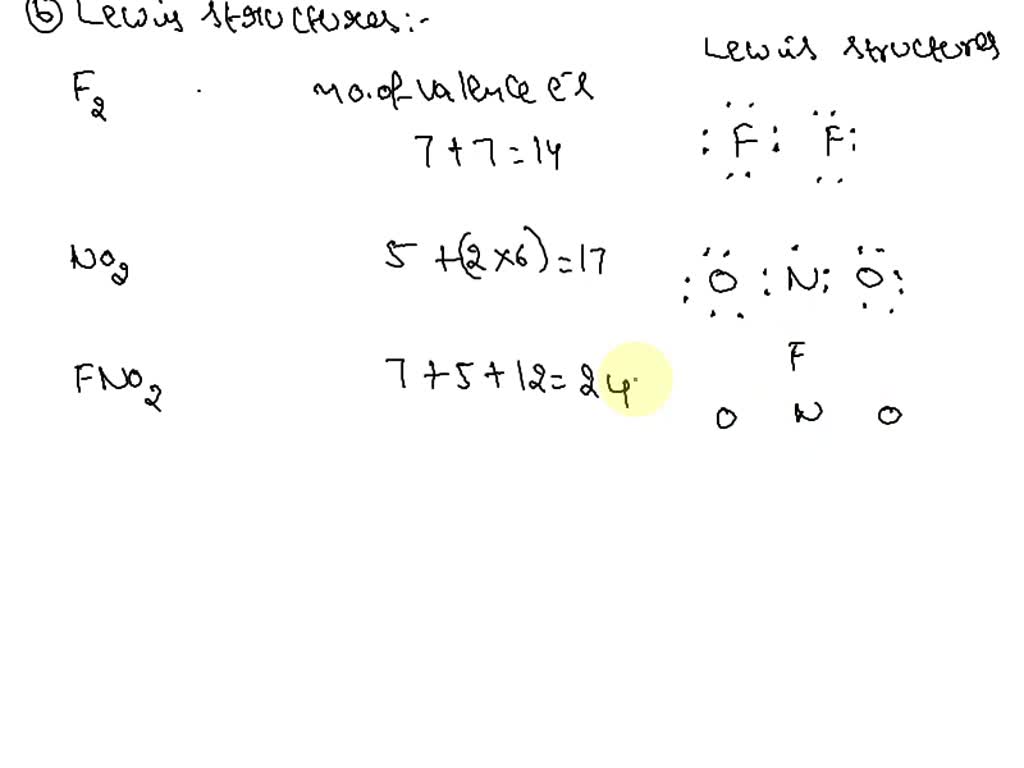 ⑥ Lewis structures:-
Lewis structures
F₂ no. of valence e⁻s
7 + 7 = 14 :F: F:
NO₂ 5 + (2 × 6) = 17 :O : N : O:
F
FNO₂ 7 + 5 + 12 = 24
O N O